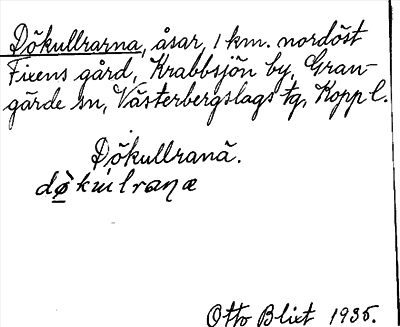 Dökullrarna, åsar, 1 km. nordöst
Fixens gård, Krabbsjön by, Gran-
gärde sn, Västerbergslags tg, Kopp l.
Dökullranä.
dø̀kúlraṇæ
Otto Blixt 1935.